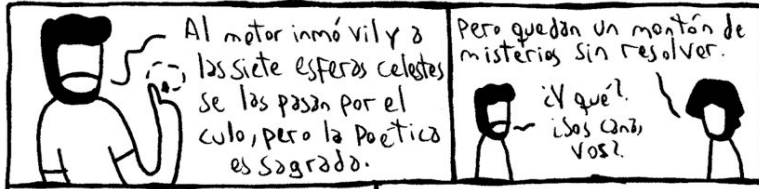 Al motor inmóvil y a
las siete esferas celestes
se las pasan por el
culo, pero la Poética
es sagrada.
Pero quedan un montón de
misterios sin resolver.
¿Y qué?
¿Sos cana,
vos?